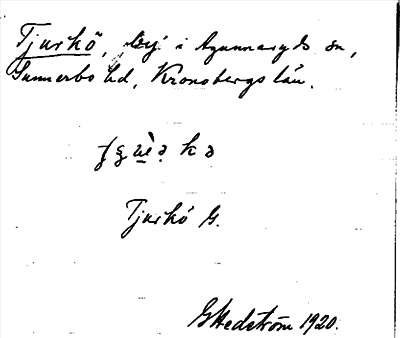 Tjurkö, by i Agunnaryds sn,
Sunnerbo hd, Kronobergs län.
Tjurkö G.
G Hedström 1920.